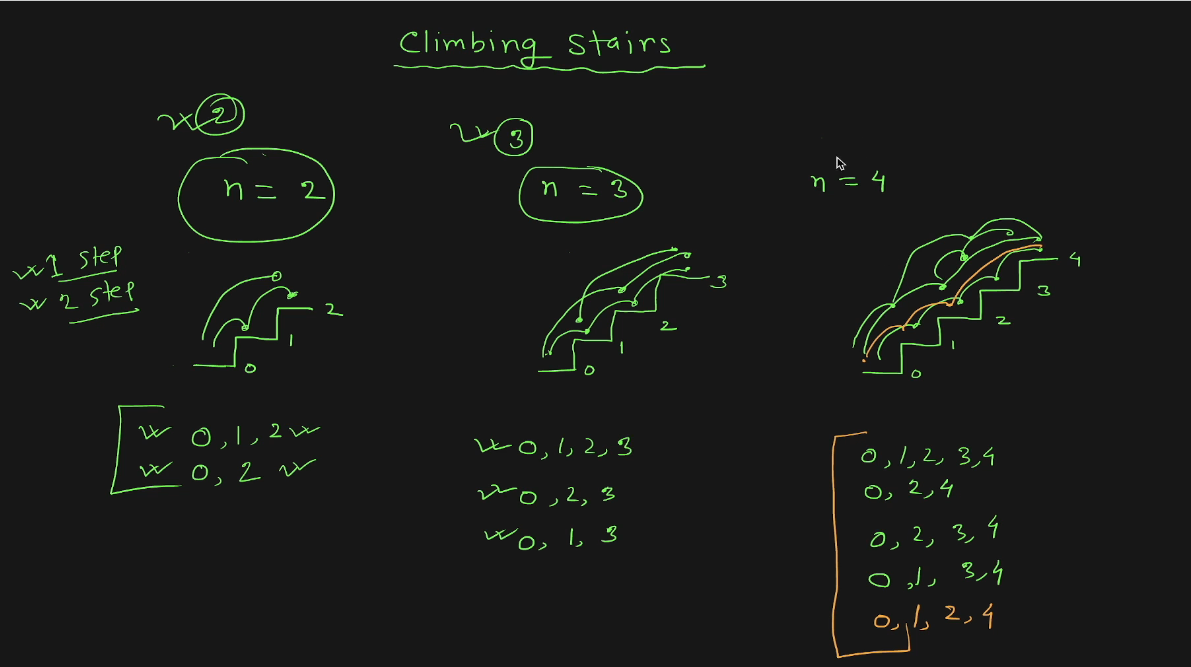 Climbing Stairs
2
n = 2
1 step
2 step
2
1
0
0, 1, 2
0, 2
3
n = 3
3
2
1
0
0, 1, 2, 3
0, 2, 3
0, 1, 3
n = 4
4
3
2
1
0
0, 1, 2, 3, 4
0, 2, 4
0, 2, 3, 4
0, 1, 3, 4
0, 1, 2, 4